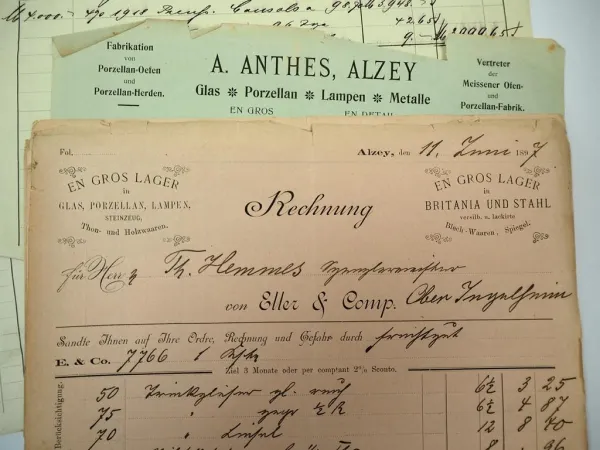 M 4000.- 4% 1918 Preuss. Consols a
9.-
Fabrikation
von
Porzellan-Oefen
und
Porzellan-Herden.
A. ANTHES, ALZEY
Glas ✻ Porzellan ✻ Lampen ✻ Metalle
EN GROS EN DETAIL
Vertreter
der
Meissener Ofen-
und
Porzellan-Fabrik.
Fol.
Alzey, den 11. Juni 1897
EN GROS LAGER
in
GLAS, PORZELLAN, LAMPEN,
STEINZEUG,
Thon- und Holzwaaren.
Rechnung
EN GROS LAGER
in
BRITANIA UND STAHL
versilb. u. lackirte
Blech-Waaren, Spiegel.
für Herr Th. Hemmes Spenglermeister
von Eller & Comp. Ober Ingelheim
Sandte Ihnen auf Ihre Ordre, Rechnung und Gefahr durch Frachtgut
E. & Co. 7766 1
Ziel 3 Monate oder per comptant 2% Sconto.
Berücksichtigung.
50 Trinkgläser gl. 6½ 3 25
75 " gepr 6½ 4 87
70 " 12 8 70
8 96